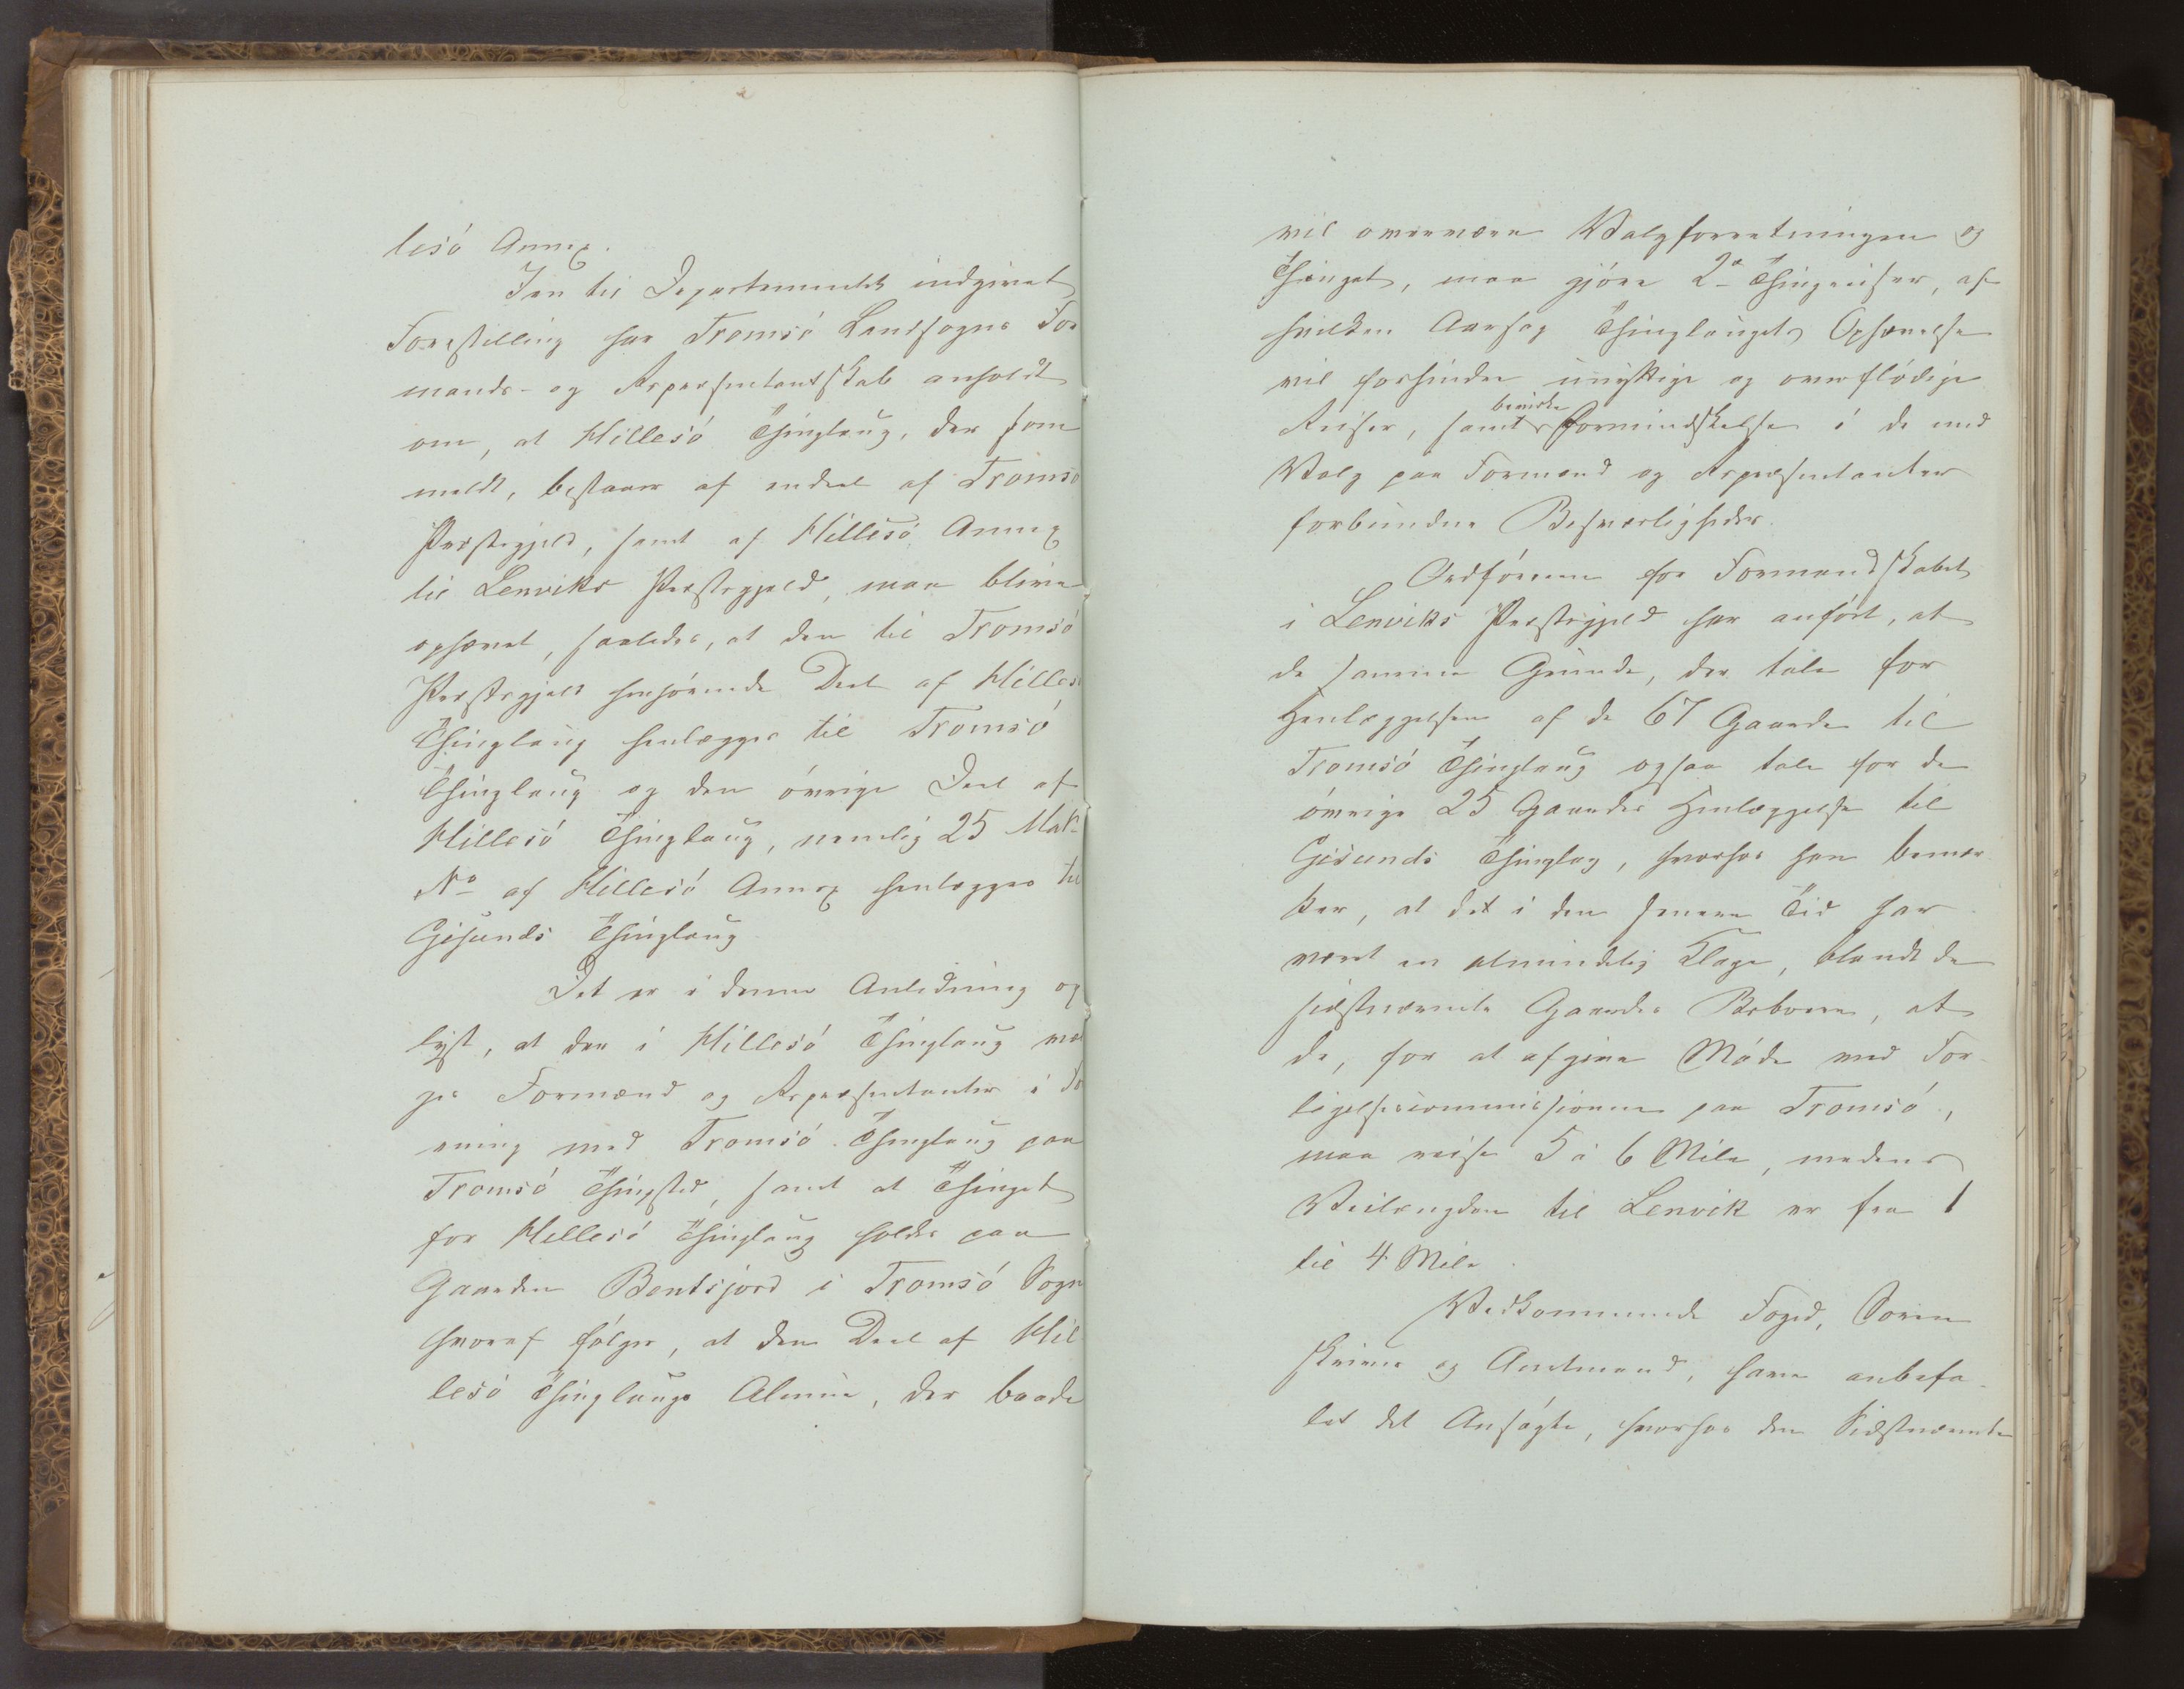 lesö Annex.
I en til Departementet indgivet
Forestilling har Tromsö Landsogns For
mands- og Repræsentantskab anholdt
om, at Hillesö Thinglaug, der som
meldt, bestaaer af endeel af Tromsö
Præstegjeld, samt af Hillesö Annex
til Lenviks Præstegjeld, maa blive
ophævet, saaledes, at den til Tromsö
Præstegjeld henhörende Deel af Hillesö
Thinglaug henlægges til Tromsö
Thinglaug og den övrige Deel af
Hillesö Thinglaug, nemlig 25 Mat.
No af Hillesö Annex henlægges til
Gisunds Thinglaug
Det er i denne Anledning op
lyst, at der i Hillesö Thinglaug væl
ges Formænd og Repræsentanter i Fo
rening med Tromsö Thinglaug paa
Tromsö Thingsted, samt at Thinget
for Hillesö Thinglaug holdes paa
Gaarden Bentsjord i Tromsö Sogn
hvoraf fölger, at den Deel af Hil
lesö Thinglaugs Almue, der baade
vil overvære Valgforretningen og
Thinget, maa gjöre 2de Thingreiser, af
hvilken Aarsag Thinglaugets Ophævelse
vil forhindre unyttige og overflödige
Reiser, samt bevirke Formindskelse i de med
Valg paa Formænd og Repræsentanter
forbundne Besværligheder.
Ordföreren for Formandskabet
i Lenviks Præstegjeld har anfört, at
de samme Grunde, der tale for
Henlæggelsen af de 67 Gaarde til
Tromsö Thinglaug ogsaa tale for de
övrige 25 Gaardes Henlæggelse til
Gisunds Thinglag, hvorhos han bemær
ker, at det i den senere Tid har
været en almindelig Klage, blandt de
sidstnævnte Gaardes Beboere, at
de, for at afgive Möde ved For-
ligelsescommissionen paa Tromsö,
maa reise 5 à 6 Mile, medens
Veilængden til Lenvik er fra 1
til 4 Mile.
Vedkommende Foged, Soren
skriver og Amtmand, have anbefa-
let det Ansögte, hvorhos den Sidstnævnte